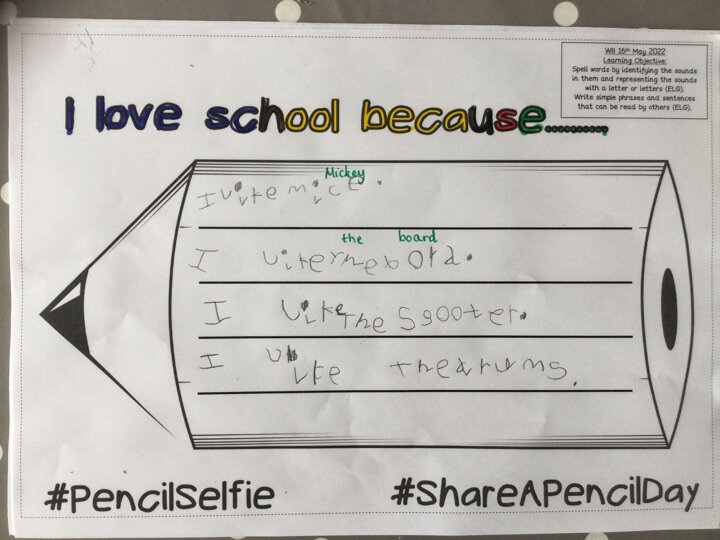 WB 16th May 2022
Learning Objective:
Spell words by identifying the sounds
in them and representing the sounds
with a letter or letters (ELG).
Write simple phrases and sentences
that can be read by others (ELG).
I love school because..........
Mickey
I like mice.
the board
I like the bord.
I like The Sgooter.
I like the drums.
#PencilSelfie
#ShareAPencilDay